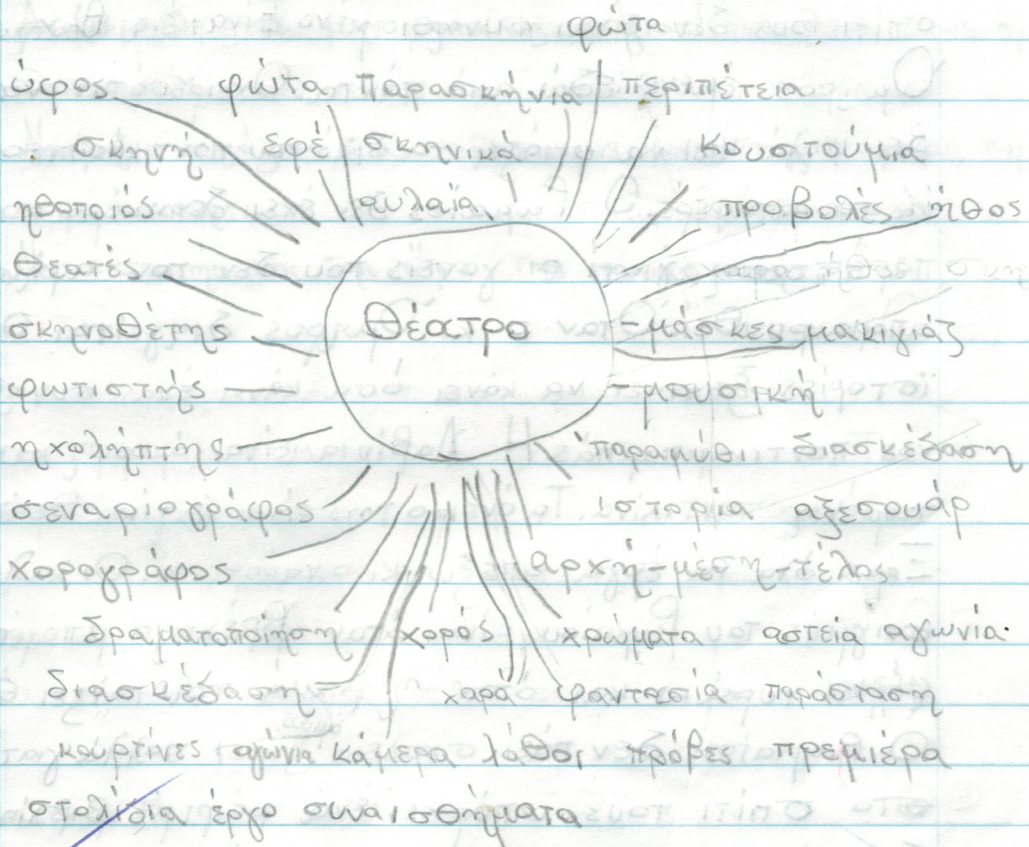 φώτα
ύφος φώτα παρασκήνια περιπέτεια
σκηνή εφέ σκηνικά κουστούμια
ηθοποιός αυλαία προβολές ήθος
θεατές
σκηνοθέτης Θέατρο -μάσκες μακιγιάζ
φωτιστής -μουσική
ηχολήπτης παραμύθι διασκέδαση
σεναριογράφος ιστορία αξεσουάρ
χορογράφος αρχή-μέση-τέλος
δραματοποίηση χορός χρώματα αστεία αγωνία.
διασκέδαση χαρά φαντασία παράσταση
κουρτίνες αγώνια κάμερα λάθοι πρόβες πρεμιέρα
στολίδια έργο συναισθήματα